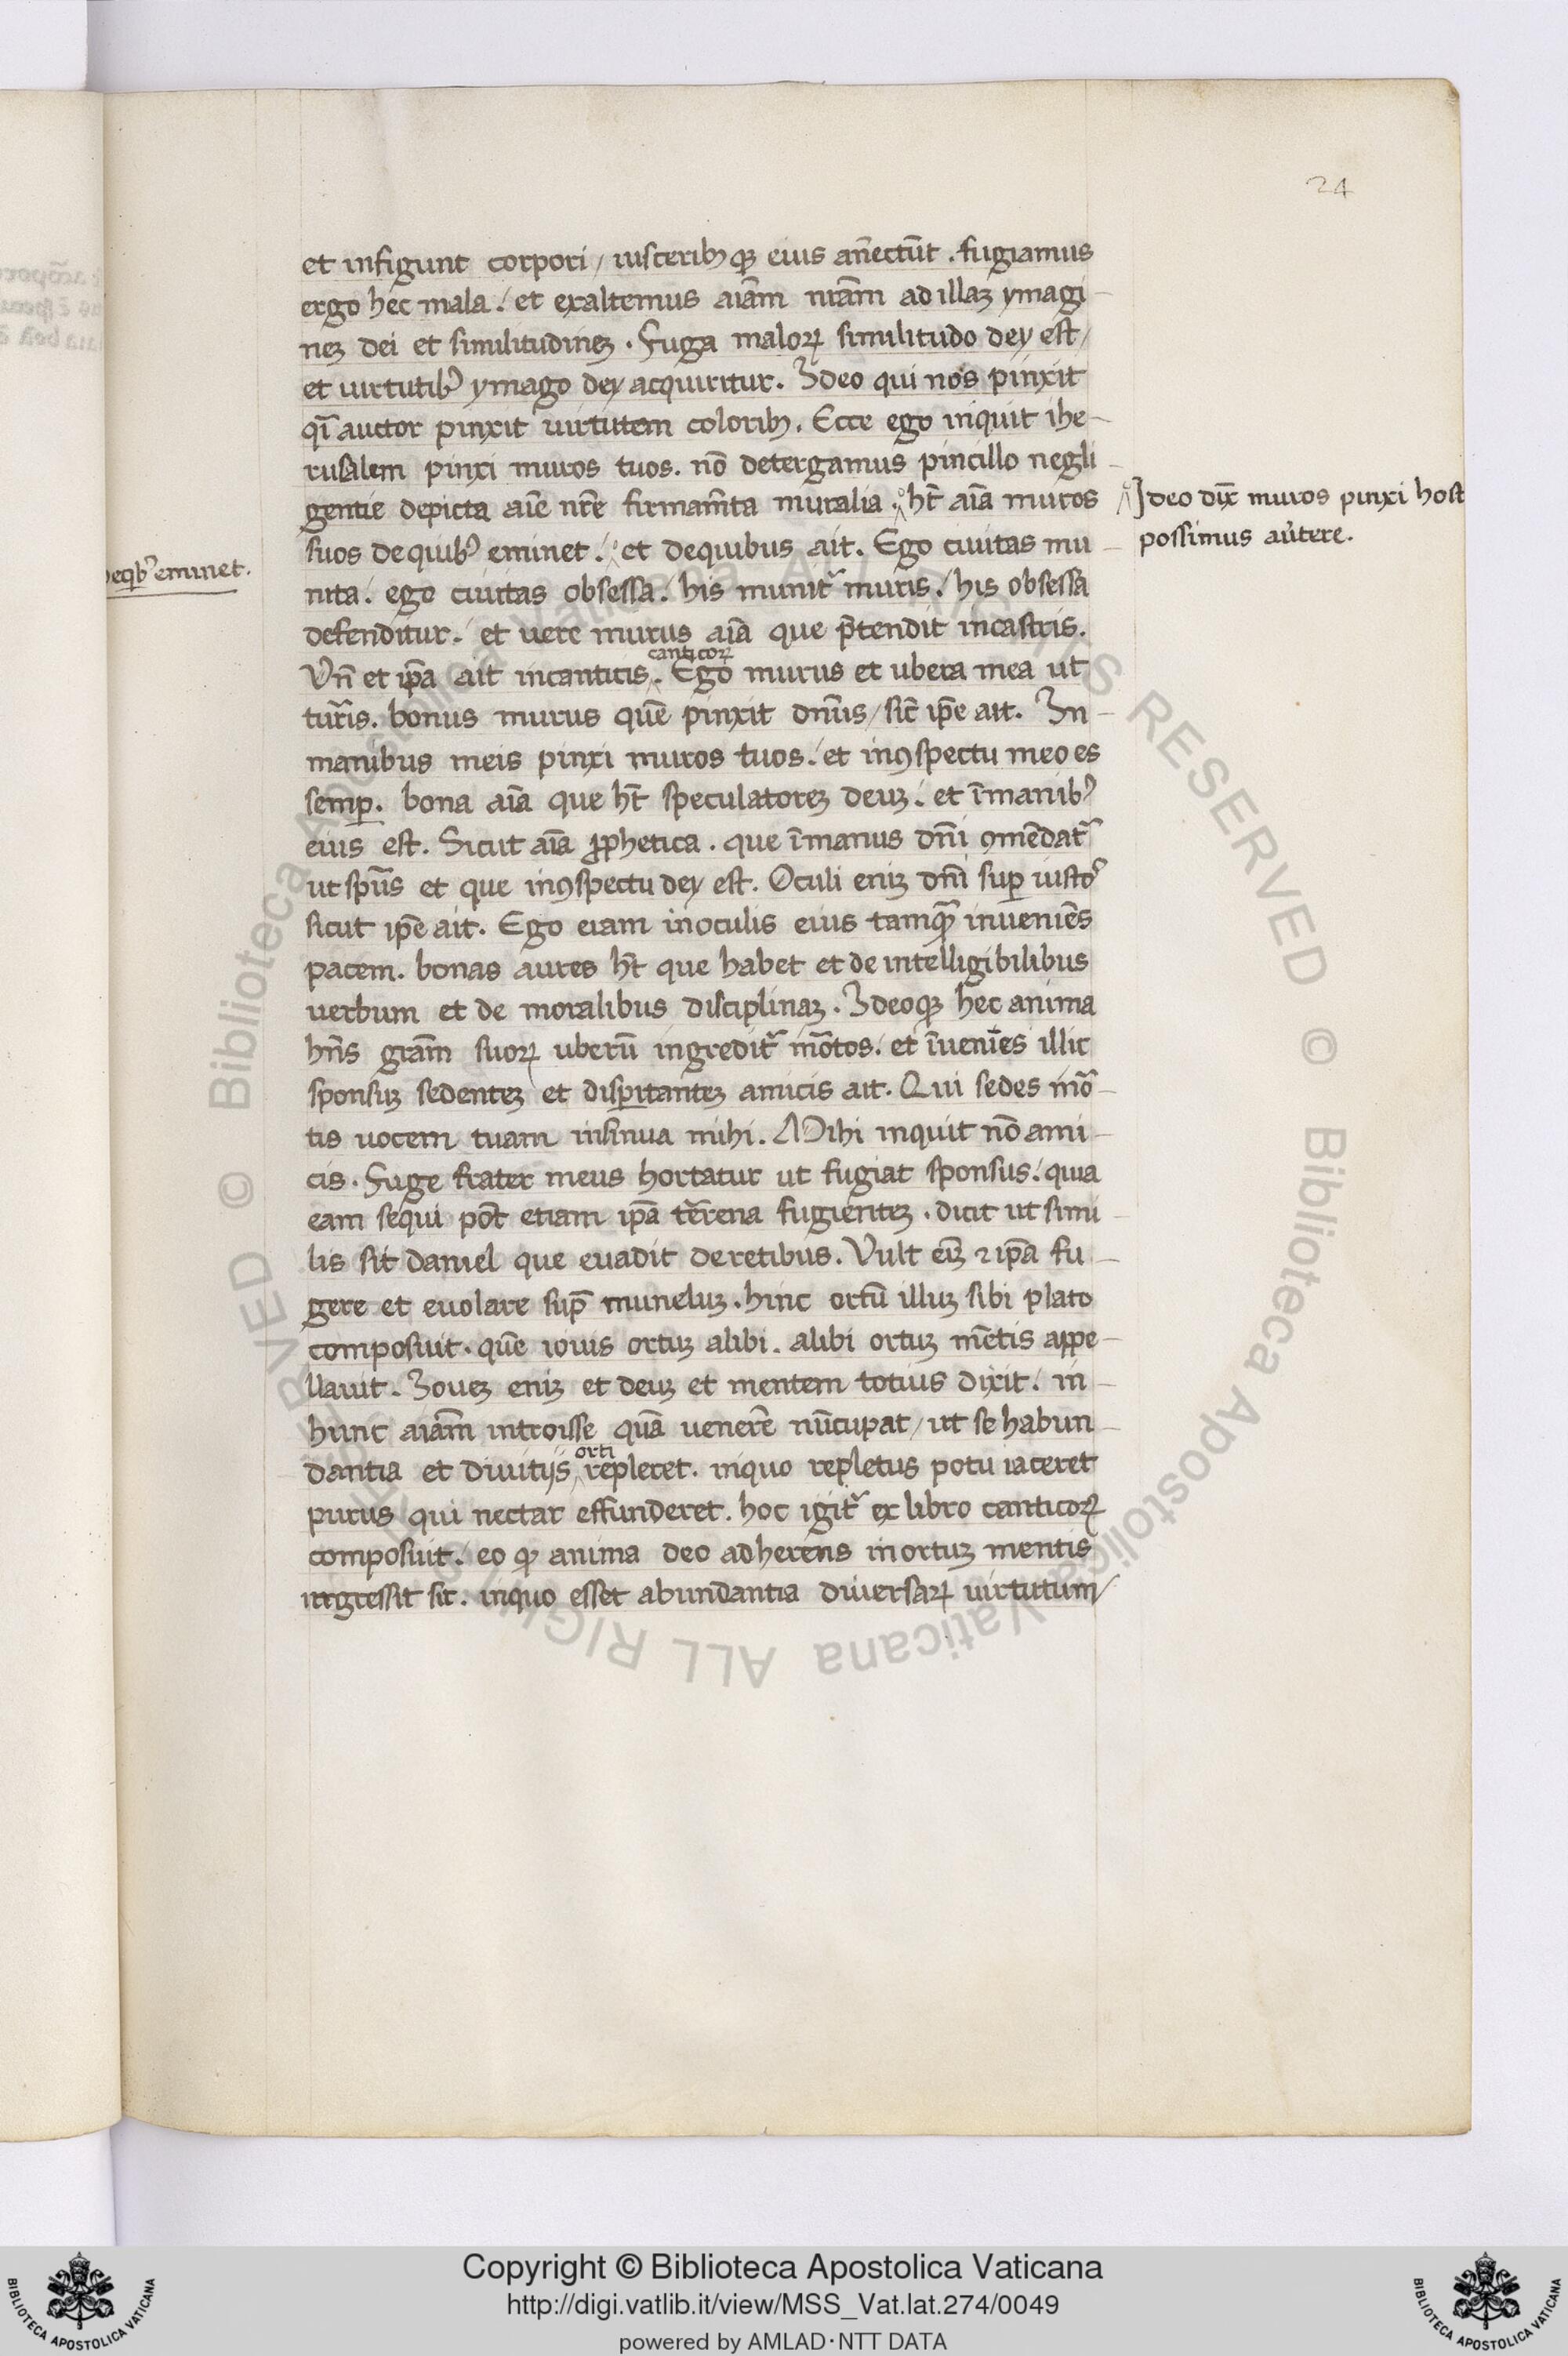 24
et infigunt corpori / uisceribꝫ qꝫ eius añectūt . fugiamus
ergo hec mala ./ et exaltemus aīam nrām ad illaꝫ ymagi-
neꝫ dei et similitudineꝫ . Fuga maloꝝ similitudo dey est /
et uirtutibꝰ ymago dey acquiritur . Ideo qui nos pinxit
qī auctor pinxit uirtutem coloribꝫ . Ecce ego inquit ihe-
rusalem pinxi muros tuos . nō detergamus pincillo negli-
gentie depicta aīe nr̄e firmam̄ta muralia . hꝫ̄t aīa muros
Ideo dix̄ muros pinxi host
possimus aủtere .
suos de quibꝰ eminet ./ et dequibus ait . Ego ciuitas mu-
eqbꝰ eminet .
nita ./ ego ciuitas obsessa ./ his munit᷑ muris ./ his obsessa
defenditur ./ et uere murus aīa que p̄tendit incastris .
Vn̄ et ip̄a ait incanticis . canticoꝝ Ego murus et ubera mea ut
turr̄is . bonus murus quē pinxit dn̄us / sic̄ ip̄e ait . In-
manibus meis pinxi muros tuos ./ et inꝯspectu meo es
semꝑ . bona aīa que ht̄ speculatoreꝫ deuꝫ ./ et īmanibꝰ
eius est . Sicut aīa ꝓphetica . que īmanus dn̄i ꝯmēdat᷑
ut sp̄us et que inꝯspectu dey est . Oculi eniꝫ dn̄i suꝑ iustoꝰ
sicut ip̄e ait . Ego eram inoculis eius tamqᷓ inueniēs
pacem . bonas aures ht̄ que habet et de intelligibilibus
uerbum et de moralibus disciplinaꝫ . Ideoqꝫ hec anima
hn̄s grām suoꝝ uberū ingredit᷑ īn ōtos ./ et īueniēs illic
sponsuꝫ sedenteꝫ et disputanteꝫ amicis ait . Qui sedes inō-
tis uocem tuam insinua mihi . Mihi inquit nō ami-
cis . Fuge frater meus hortatur ut fugiat sponsus ./ quia
eam sequi pōt etiam ip̄a tr̄rena fugienteꝫ . dicit ut simi-
lis sit daniel que euadit deretibus . Vult eīꝫ ⁊ ip̄a fu-
gere et euolare sup̄ muneluꝫ . hinc ortū illuꝫ sibi plato
composuit . quē iouis ortuꝫ alibi . alibi ortuꝫ mētis appe-
llauit . Ioueꝫ eniꝫ et deuꝫ et mentem totius dixit ./ in-
hunc aīam introisse quā uenerē nūcupat / ut se habun-
dantia et diuitijs orti repleret . inquo repletus potu iaceret
purus qui nectar effunderet . hoc igit᷑ ex libro canticoꝝ
composuit ./ eo qꝫ anima deo adherens in ortuꝫ mentis
ingressit sit . inquo esset abundantia diuersaꝝ uirtutum /
Copyright © Biblioteca Apostolica Vaticana
http://digi.vatlib.it/view/MSS_Vat.lat.274/0049
powered by AMLAD·NTT DATA